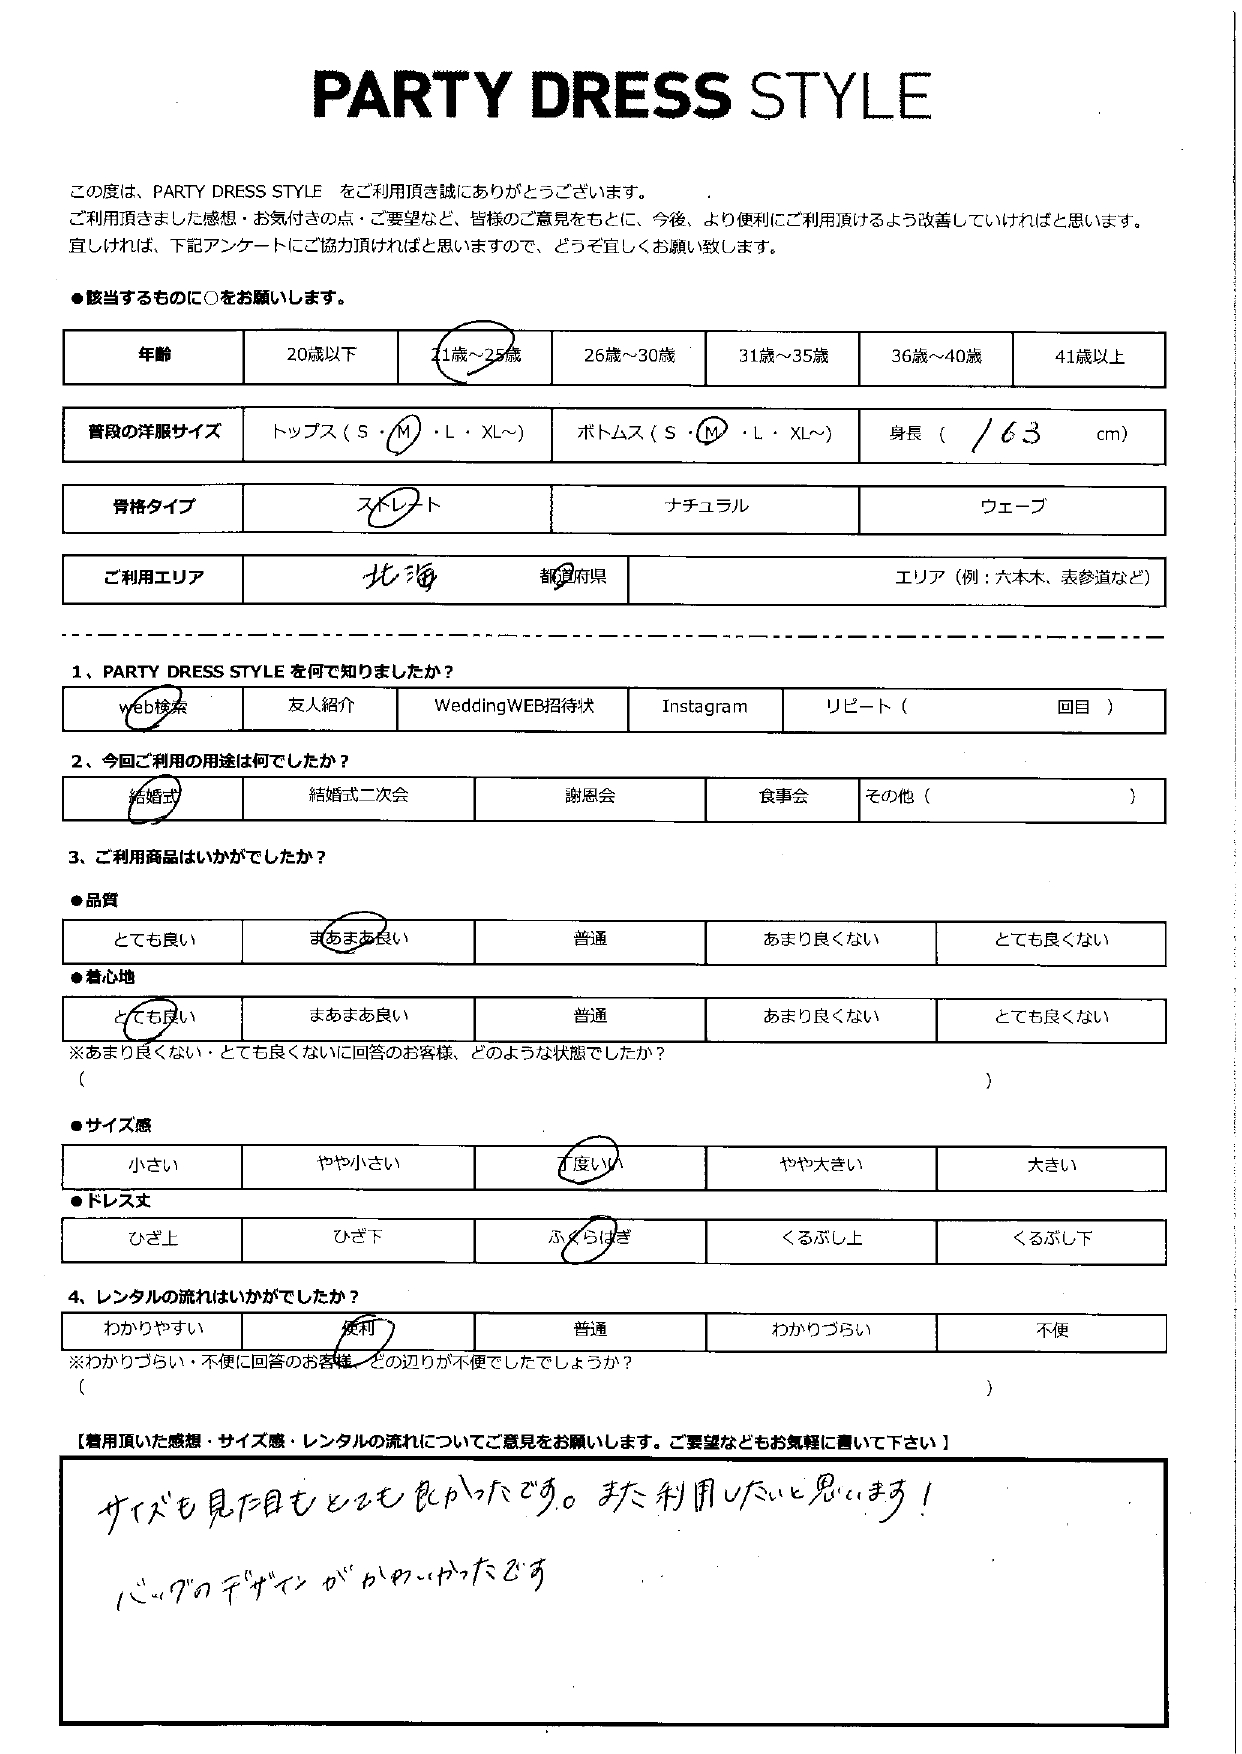 PARTY DRESS STYLE
この度は、PARTY DRESS STYLE　をご利用頂き誠にありがとうございます。
ご利用頂きました感想・お気付きの点・ご要望など、皆様のご意見をもとに、今後、より便利にご利用頂けるよう改善していければと思います。
宜しければ、下記アンケートにご協力頂ければと思いますので、どうぞ宜しくお願い致します。
●該当するものに○をお願いします。
年齢 20歳以下 21歳～25歳 26歳～30歳 31歳～35歳 36歳～40歳 41歳以上
普段の洋服サイズ トップス ( S ・ M ・ L ・ XL～) ボトムス ( S ・ M ・ L ・ XL～) 身長 ( 163 cm)
骨格タイプ ストレート ナチュラル ウェーブ
ご利用エリア 北海 都道府県 エリア（例：六本木、表参道など）
1、PARTY DRESS STYLE を何で知りましたか？
web検索 友人紹介 WeddingWEB招待状 Instagram リピート（ 回目 ）
2、今回ご利用の用途は何でしたか？
結婚式 結婚式二次会 謝恩会 食事会 その他（ ）
3、ご利用商品はいかがでしたか？
●品質
とても良い まあまあ良い 普通 あまり良くない とても良くない
●着心地
とても良い まあまあ良い 普通 あまり良くない とても良くない
※あまり良くない・とても良くないに回答のお客様、どのような状態でしたか？
( )
●サイズ感
小さい やや小さい 丁度いい やや大きい 大きい
●ドレス丈
ひざ上 ひざ下 ふくらはぎ くるぶし上 くるぶし下
4、レンタルの流れはいかがでしたか？
わかりやすい 便利 普通 わかりづらい 不便
※わかりづらい・不便に回答のお客様、どの辺りが不便でしたでしょうか？
( )
【着用頂いた感想・サイズ感・レンタルの流れについてご意見をお願いします。ご要望などもお気軽に書いて下さい 】
サイズも見た目もとても良かったです。また利用したいと思います！
バッグのデザインがかわいかったです